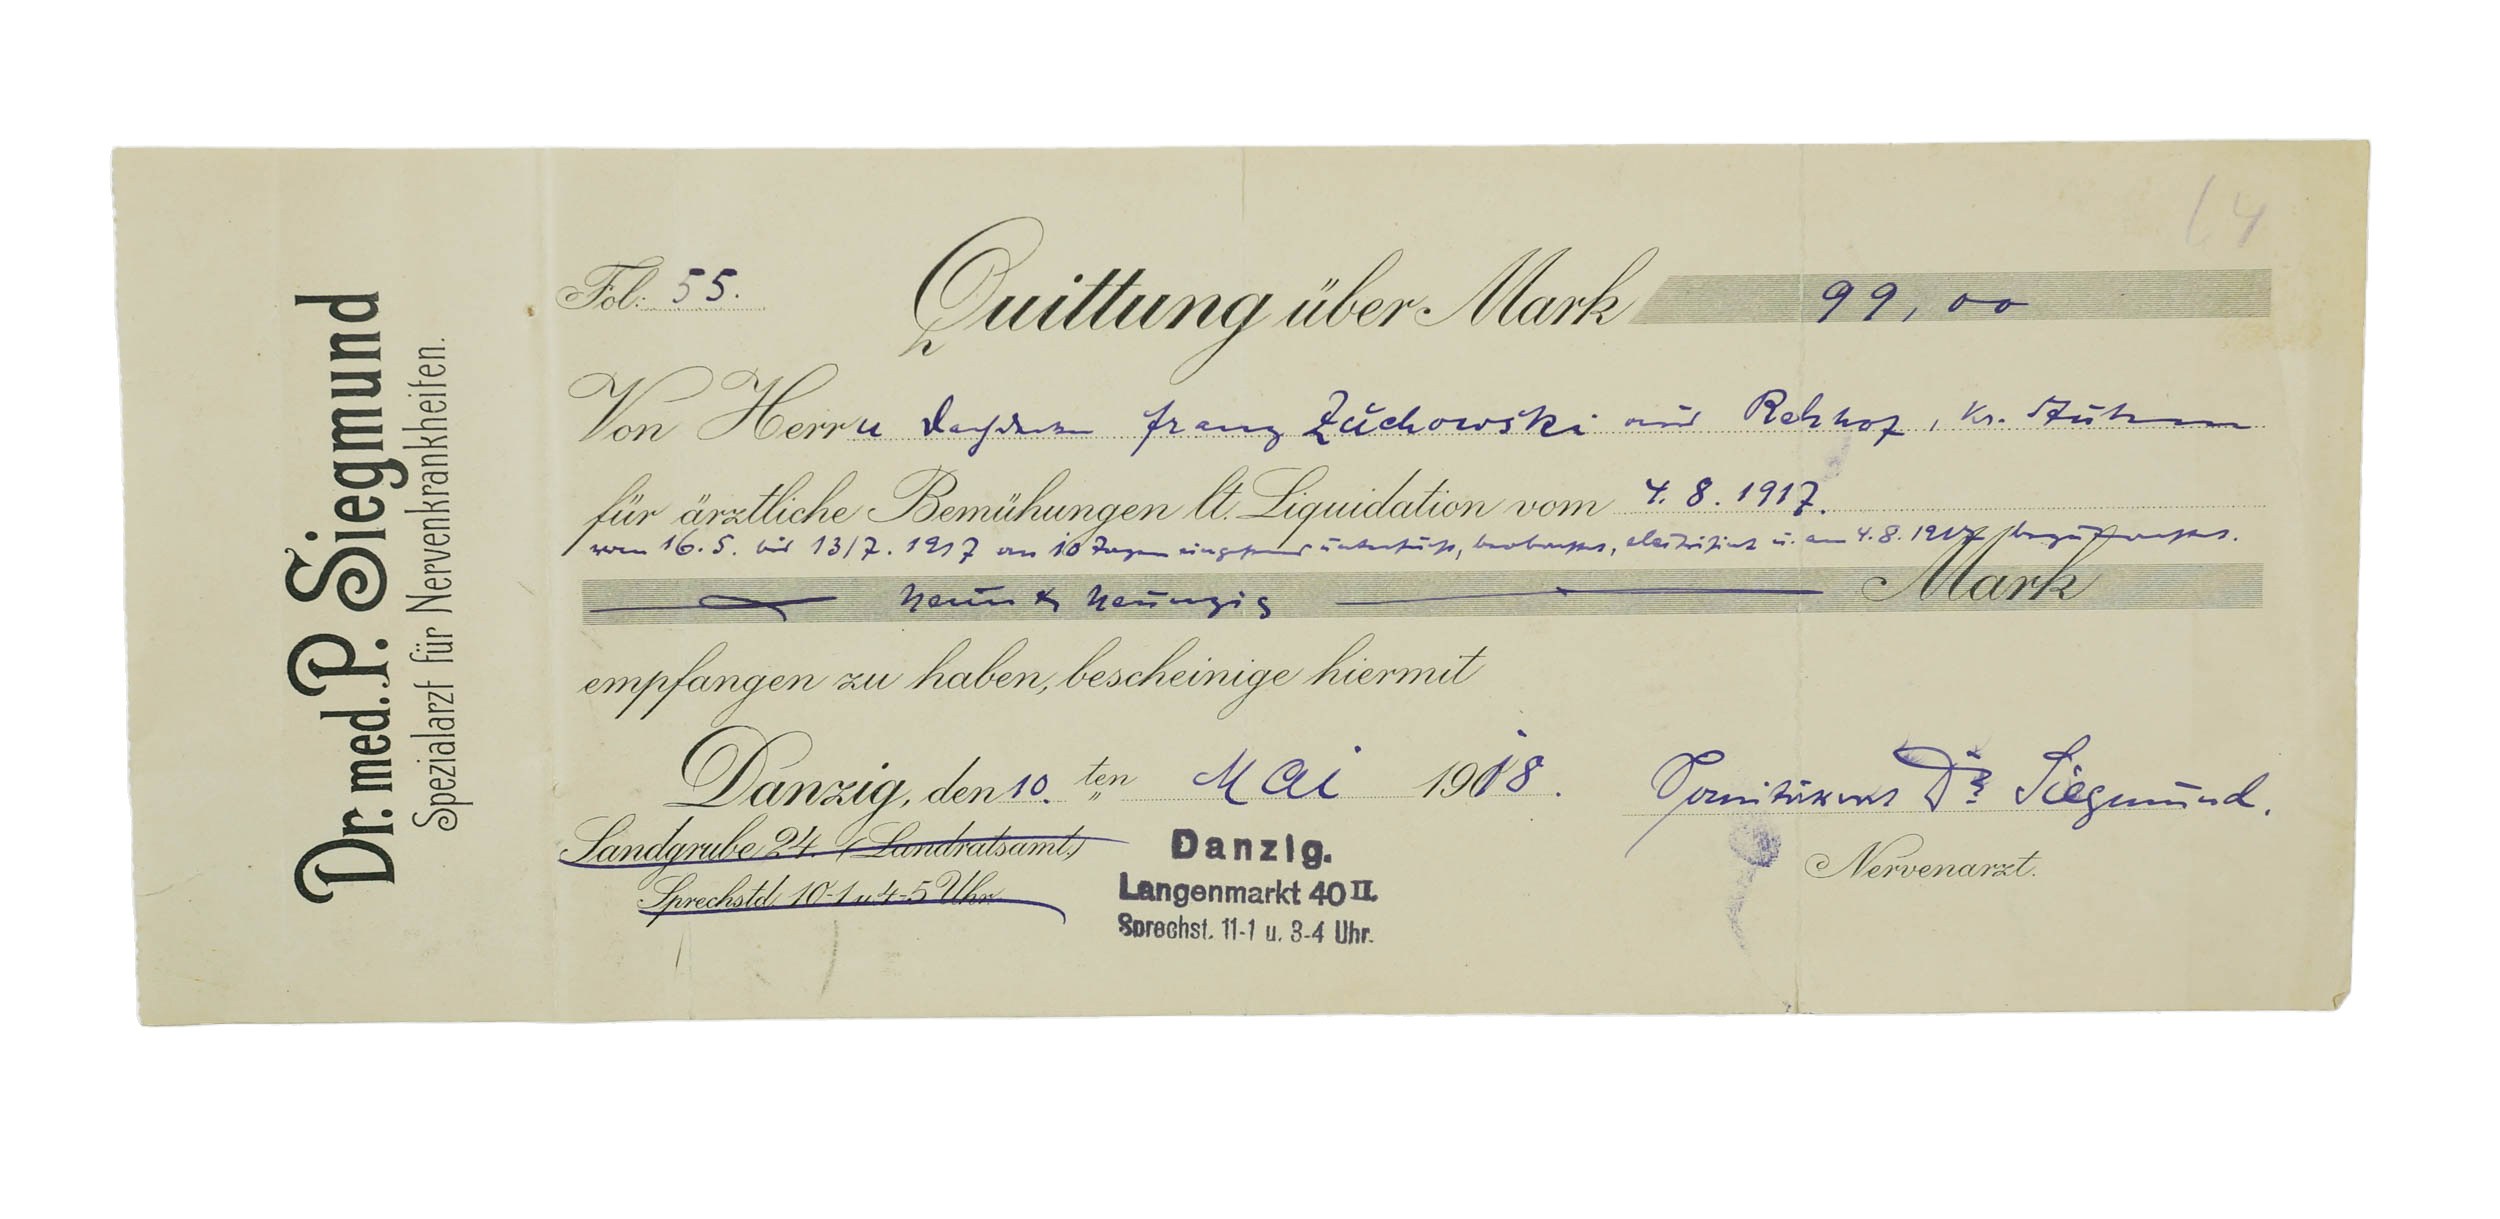 Dr. med. P. Siegmund
Spezialarzt für Nervenkrankheiten.
64
Fol: 55.
Quittung über Mark 99,00
Von Herrn Franz Zuchowski aus Rehhof, Kr. Stuhm
für ärztliche Bemühungen lt. Liquidation vom 4. 8. 1917.
vom 16. 5. bis 13/7. 1917 an 10 Tagen eingehend untersucht, beobachtet, elektrisiert u. am 4. 8. 1917 begutachtet.
neun & neunzig Mark
empfangen zu haben, bescheinige hiermit
Danzig, den 10. ten Mai 1918.
Sanitätsrat Dr Siegmund.
Nervenarzt.
Sandgrube 24. (Landratsamt.)
Sprechstd. 10-1 u. 4-5 Uhr.
Danzig.
Langenmarkt 40 II.
Sprechst. 11-1 u. 3-4 Uhr.